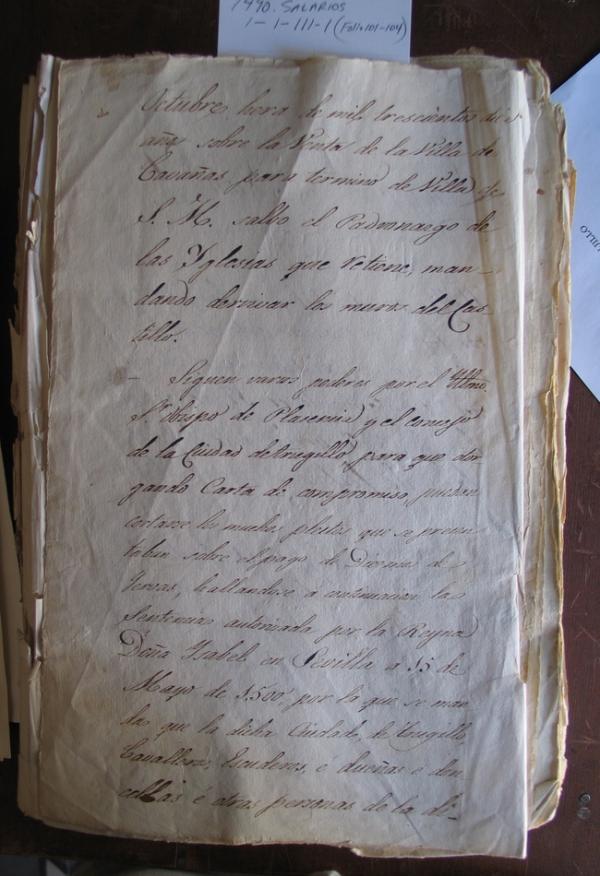 1990. SALARIOS
1-1-111-1 (Foli. 101-104)
Octubre hera de mil trescientos diez
años sobre la Venta de la Villa de
Cavañas para termino de Villa de
S. M. salbo el Padronazgo de
las Yglesias que retiene, man-
dando derrivar los muros del Cas
tillo.
- Siguen varios poderes por el Yltmo.
Sr. Obispo de Plasencia y el concejo
de la Ciudad de trugillo para que otor
gando Carta de compromiso, puedan
cortarse los muchos pleitos que se presen
taban sobre el pago de Diezmos de
Yervas, hallandose a continuacion las
Sentencias autorizada por la Reyna
Doña Ysabel en Sevilla a 15 de
Mayo de 1500, por la que se man
da que la dicha Ciudad de Trugillo,
Cavalleros, Escuderos, e dueñas e don
cellas é otras personas de la di-